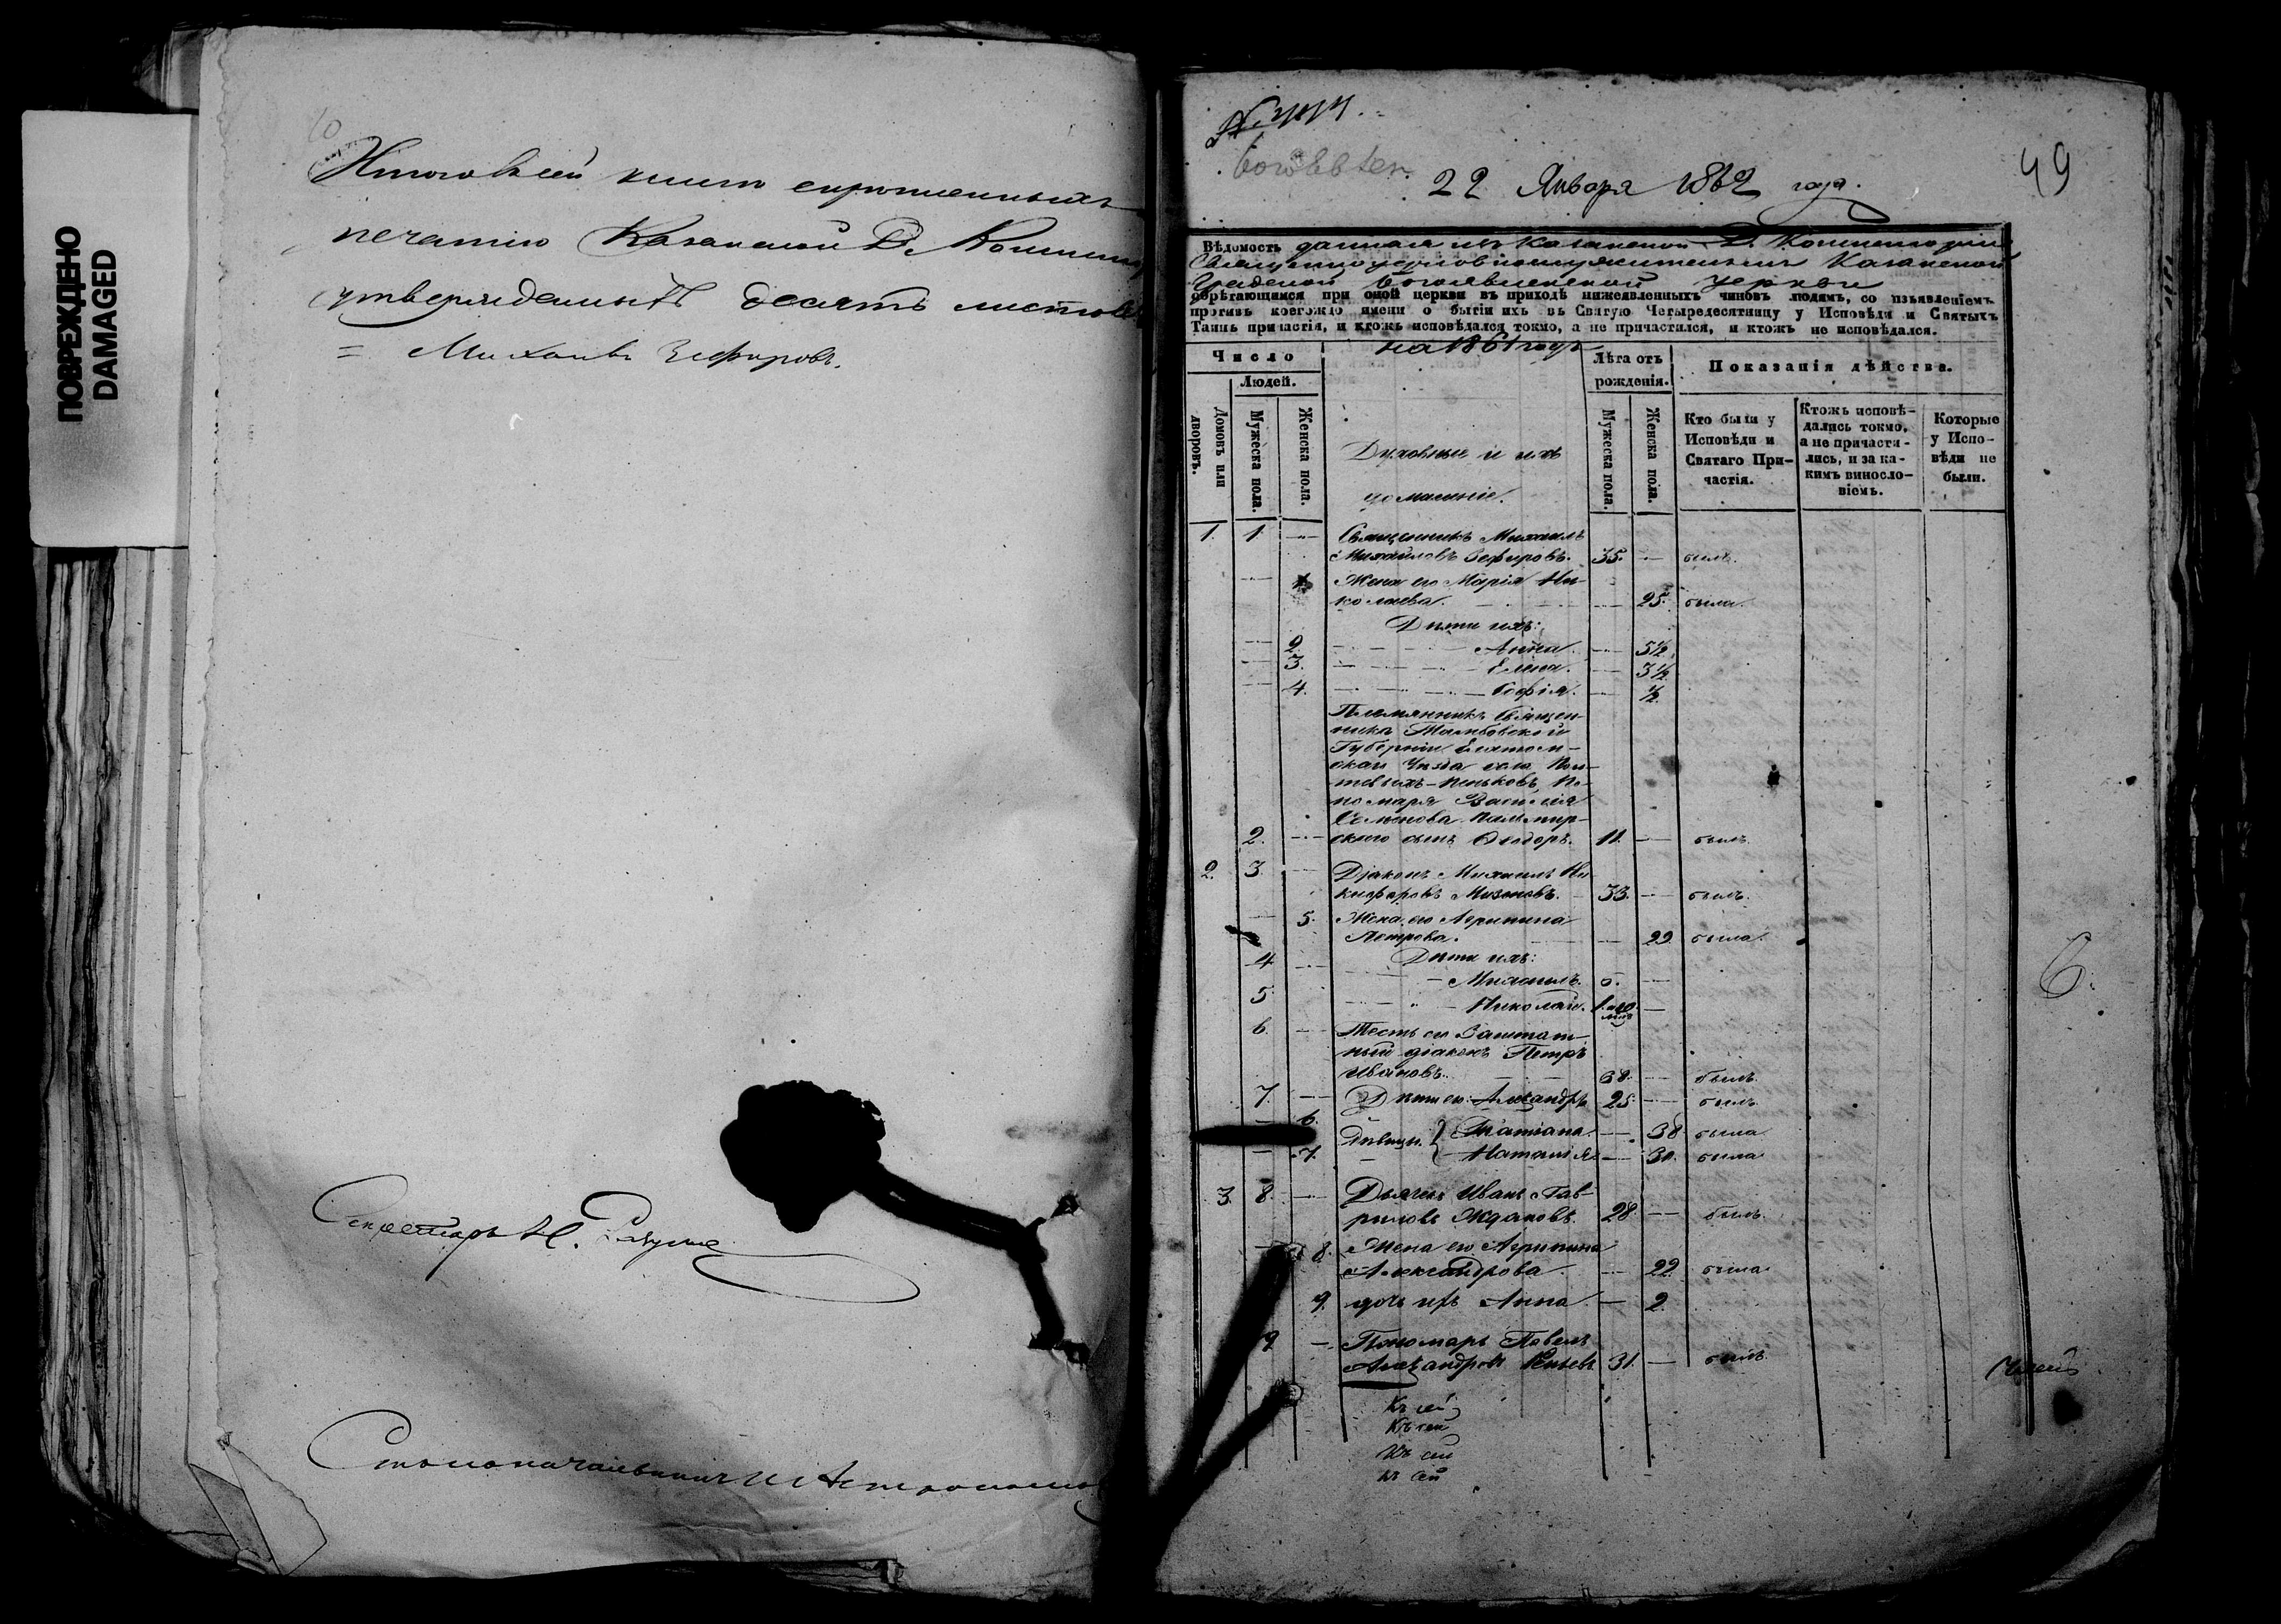 ПОВРЕЖДЕНО
DAMAGED
Итого въ сей книге скрепленныхъ
печатию Казанской Д. Консист
утвержденныхъ десять листовъ
= Михаилъ Зефировъ.
Секретарь Н.
Столоначальникъ
22 Января 1862 года.
49
Вѣдомость данная изъ Казанской Д. Консисторіи
Священноцерковнослужителямъ Казанской
Градской Богоявленской церкви
обрѣтающимся при оной церкви въ приходѣ нижеявленныхъ чиновъ людямъ, со изъявленіемъ
противъ коегождо имени о бытіи ихъ въ Святую Четыредесятницу у Исповѣди и Святыхъ
Таинъ причастія, и ктожъ исповѣдался токмо, а не причастился, и ктожъ не исповѣдался.
на 1861 годъ
Число
Людей.
Домовъ или дворовъ.
Мужеска пола.
Женска пола.
Духовные и ихъ
домашніе.
Лѣта отъ
рожденія.
Мужеска пола.
Женска пола.
Показанія дѣйства.
Кто были у
Исповѣди и
Святаго При-
частія.
Ктожъ исповѣ-
дались токмо,
а не причасти-
лись, и за ка-
кимъ винословіемъ.
Которые
у Испо-
вѣди не
были.
1. 1. — Священникъ Михаилъ
Михайловъ Зефировъ. 35. — былъ.
— Жена его Марія Ни-
колаева. — 25. была.
Дѣти ихъ:
— 2. Анна. — 5½
— 3. Елена. — 3½
— 4. Софія. — ½
Племянникъ Священ-
ника Тамбовской
Губерніи Елатом-
скаго Уѣзда села
Пеньковъ По-
номаря Василія
2. — сынъ Ѳеодоръ. 11. — былъ.
2. 3. — Діаконъ Михаилъ Ни-
кифоровъ 33. — былъ.
— 5. Жена его Агрипина
Петрова. — 29. была.
Дѣти ихъ:
4 — Михаилъ. —
5 — Николай. —
6. — Тесть его Заштат-
ный діаконъ Петръ
Ивановъ. 68. — былъ.
7. — Дѣти его: Александръ 25 — былъ
— 6. Дѣвицы { Татіана. — 38 была
— 7. Наталія — 30. была
3. 8. — Дьячекъ Иванъ Гав-
риловъ Ждановъ. 28 — былъ.
— 8. Жена его Агрипина
Александрова. — 22. была.
9. дочь ихъ Анна. — 2.
9 — Пономарь Павелъ
Александровъ 31. — былъ.
Къ сей
Къ сей
Къ сей
Къ сей
6.